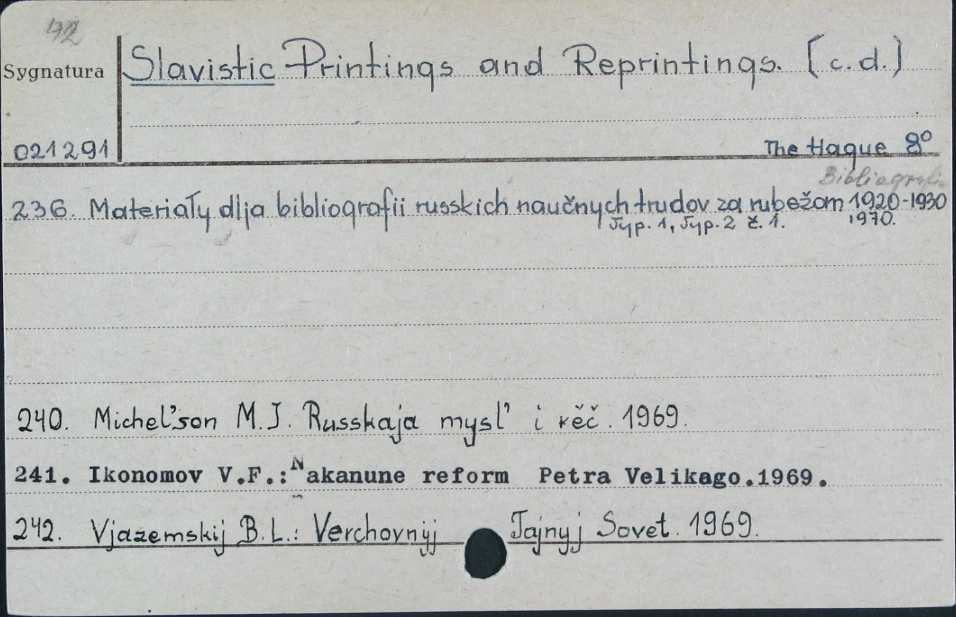 42
Sygnatura
Slavistic Printings and Reprintings. (c.d.)
021291
The Hague 8°
Bibliografi
236. Materiały dlja bibliografii russkich naučnych trudov za rubežom 1920-1930
Typ. 1, Typ. 2 č. 1. 1970.
240. Michel'son M.J. Russkaja mysl' i rěč. 1969.
241. Ikonomov V.F.: Nakanune reform Petra Velikago.1969.
242. Vjazemskij B.L.: Verchovnyj Tajnyj Sovet. 1969.